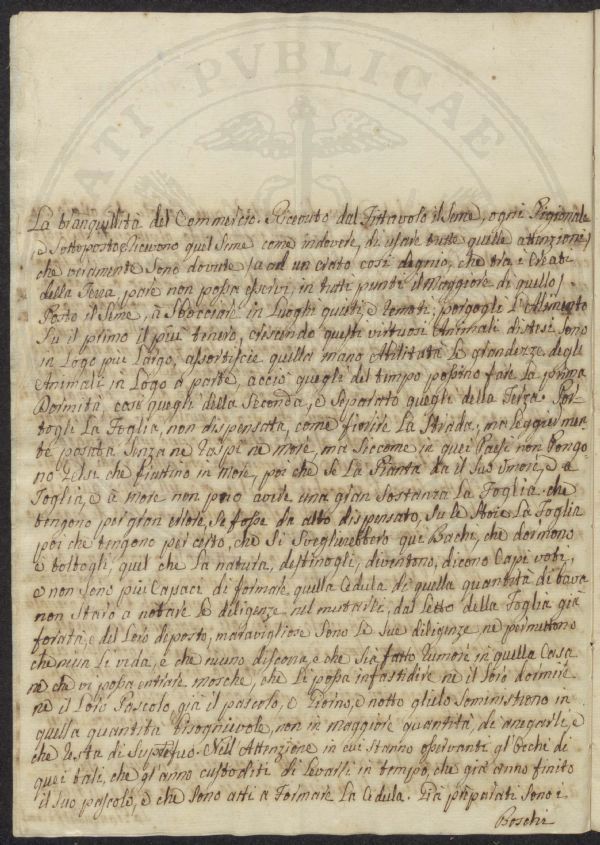 La tranquillità del Commercio. Ricevuto dal Fittavolo il Seme, ogni Pigionale
e Sottoposto Ricevono quel Seme come indovere, di usare tutte quelle attenzioni
che veramente Sono dovute a un crato così degnio, che tra i Creati
della Terra, pare non possa esservi, in tutti punti il Maggiore di quello,
Posto il Seme, à Sbocciare in Luoghi quieti, e remoti; porgogli l'Alimento
Su il primo il più tenero, crescendo questi virtuosi Animali distesi Sono
in Logo più Largo, assortiscie quella mano Abilitata Le grandezze degli
Animali in Logo a parte, acciò quegli del tempo possino fare La prima
Dormità, così quegli della Seconda, e Separato quegli della Terza. Por-
togli La Foglia, non dispensata, come fiorire La Strada, ma leggiermen
te posata Senza ne raspi ne More, ma Siccome in quei Paesi non Pongo
no Gelsi che fruttino in More, poi che se La Pianta da il Suo Umore, e a
Foglia, e a More non può avere una gran Sostanza La Foglia. che
tengono per gran errore, Se fosse da alto dispensato, Su le Stoie La Foglia
poi che tengono per certo, che Si Sveglierebbero quei Bachi, che dormono
e toltogli, quel che La natura, destinogli, diventono, dicono Capi voti,
e non Sono più Capaci di formare, quella Cedula di quella quantità di bava
non Starò a notare Le diligenze nel mutarli, dal Letto della Foglia già
forata, e del Loro diposto, maravigliose Sono Le Sue diligenze ne permettono
che niun Li vida, e che niuno discona, e che Sia fatto rumore in quella Casa
ne che vi possa entrare mosche, che Le possa infastidire ne il Loro dormire
ne il Loro Pascolo, già il pascolo, e Giorno, e notte glielo Soministrono in
quella quantità bisognievole, non in maggiore quantità, di anegarli, e
che resta di Superfluo. Nell'Attenzione in cui Stanno osservanti gl'Occhi di
quei tali, che gl'anno custoditi di Levarli in tempo, che già anno finito
il Suo pascolo, e che Sono atti a Formare La Cedula. Già preparati Sono i
Boschi
ATI PVBLICAE